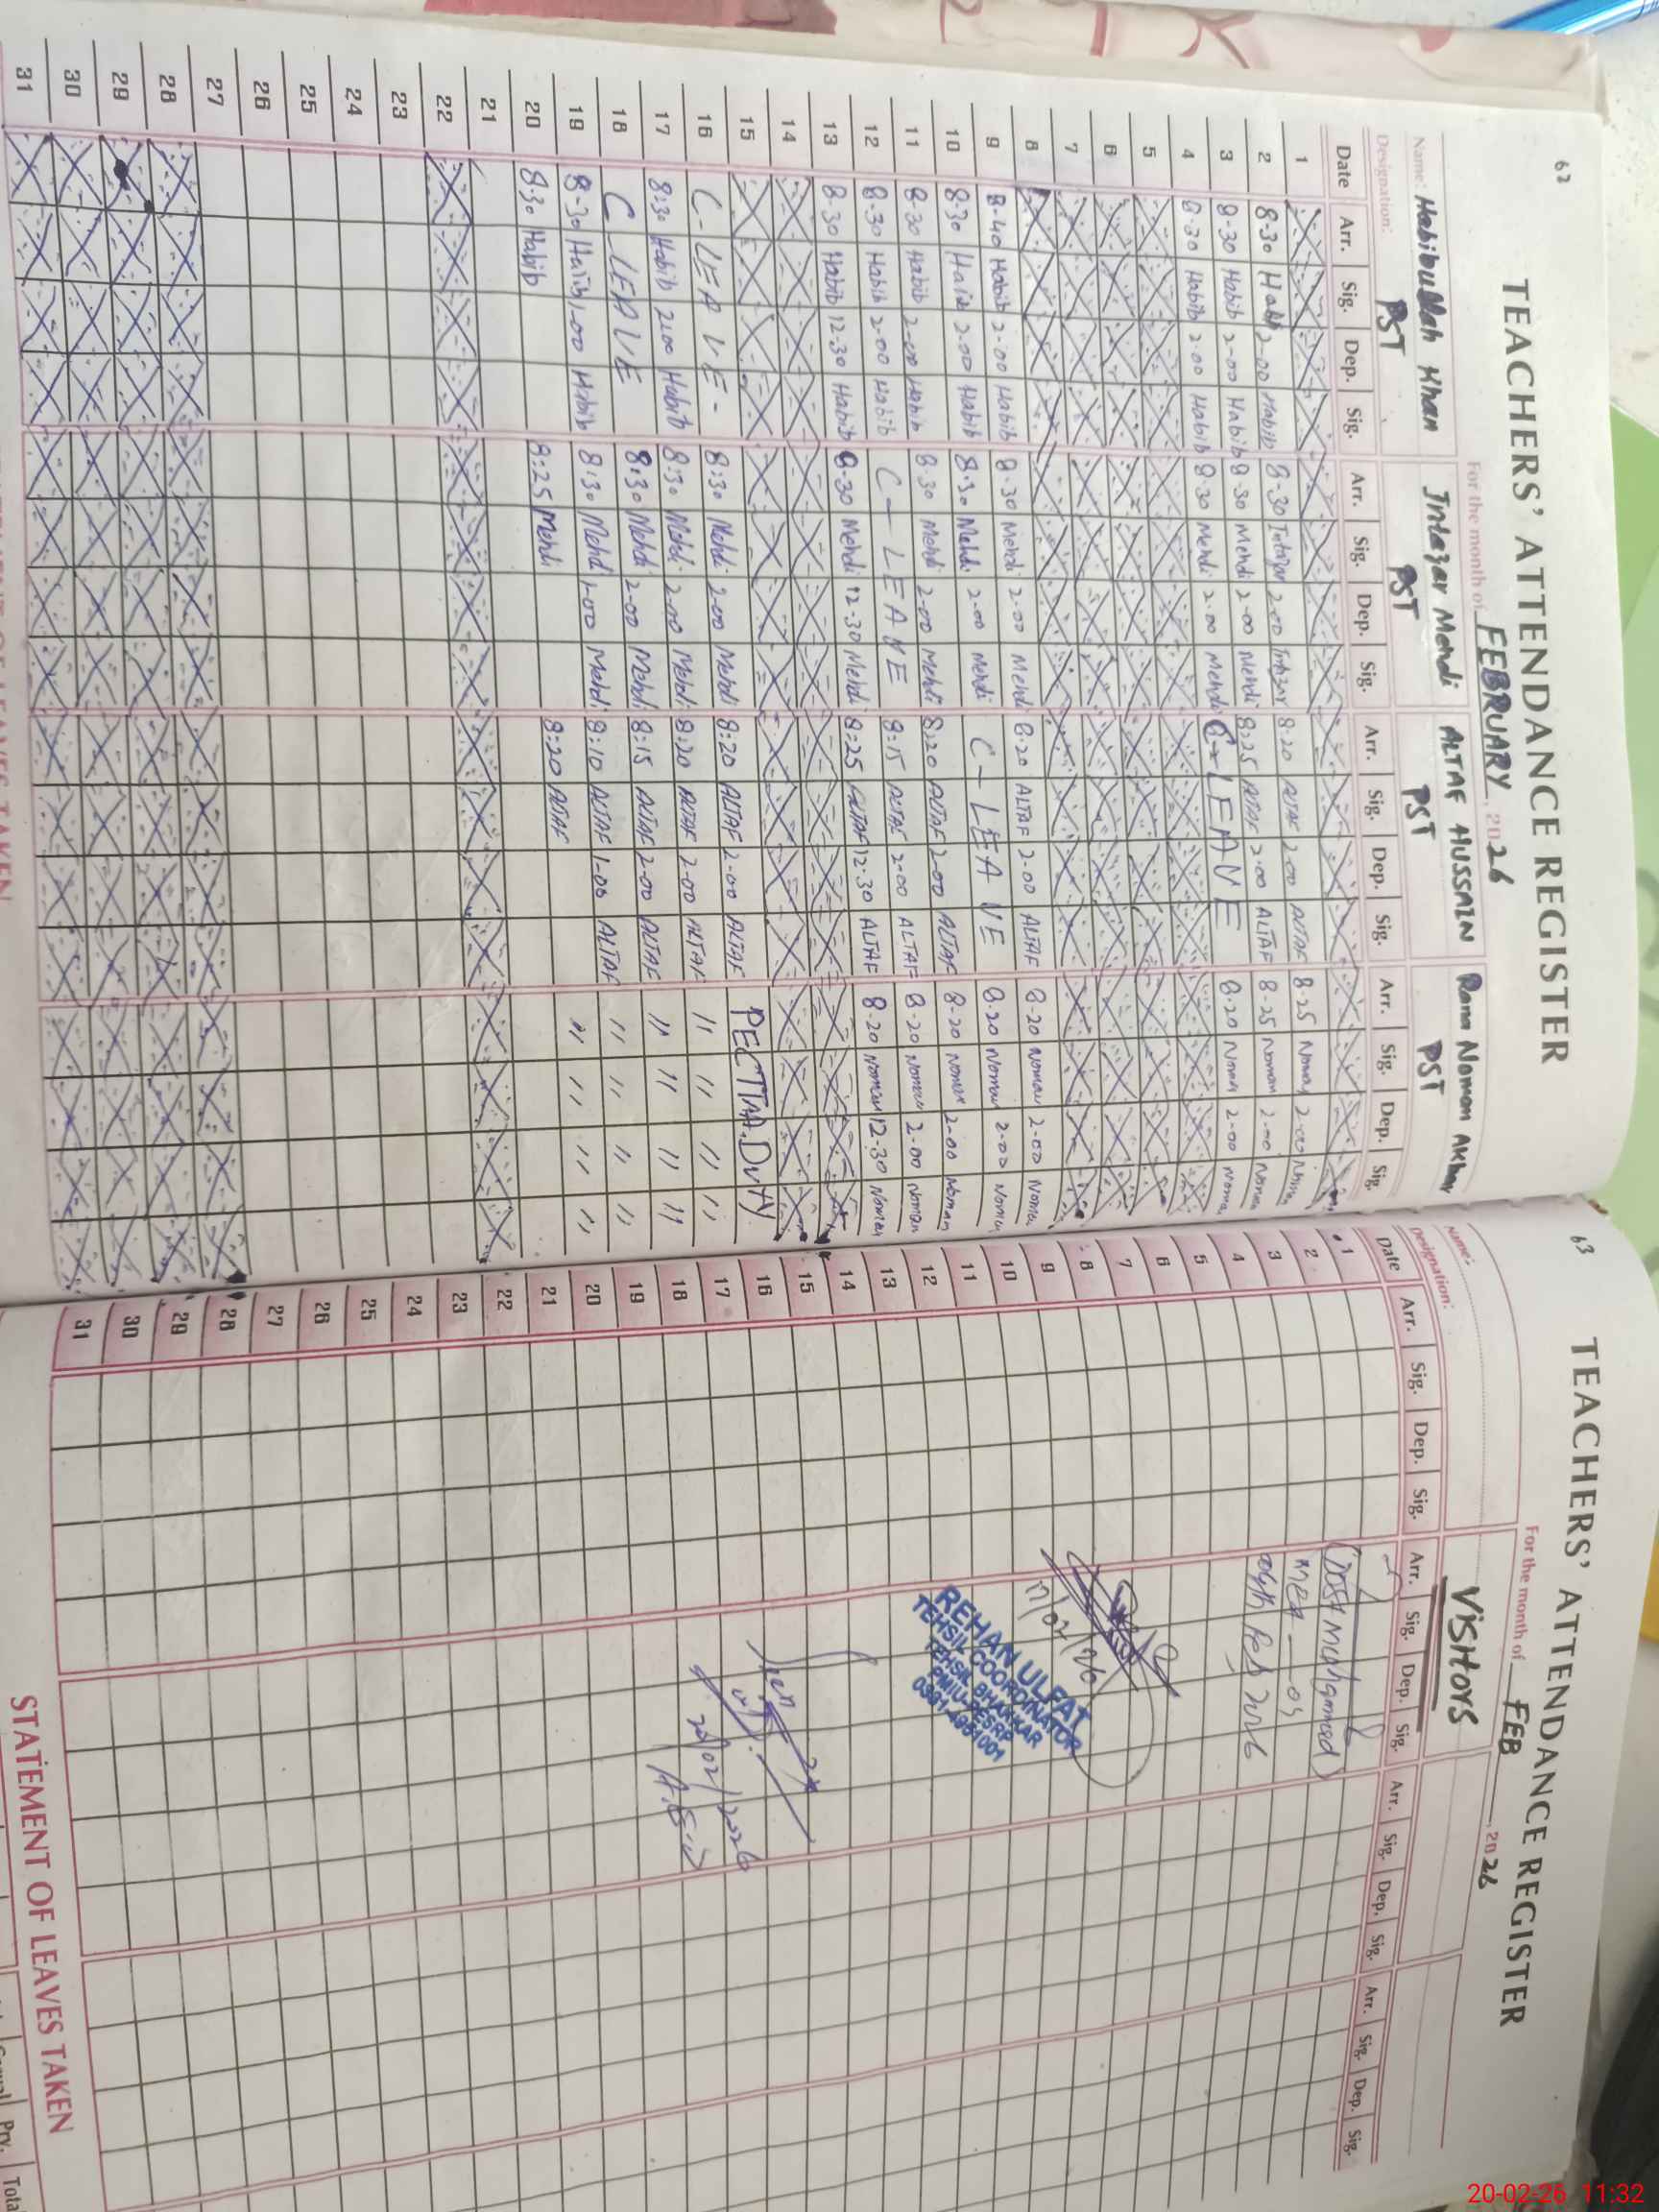 62
TEACHERS' ATTENDANCE REGISTER
For the month of FEBRUARY, 2026
Name: Habibullah Khan Intazar Mehdi ALTAF HUSSAIN Rana Noman Akhtar
Designation: PST PST PST PST
Date Arr. Sig. Dep. Sig. Arr. Sig. Dep. Sig. Arr. Sig. Dep. Sig. Arr. Sig. Dep. Sig.
1
2 8.30 Habib 2-00 Habib 8.30 Intazar 2.00 Intazar 8.20 ALTAF 2.00 ALTAF 8.25 Noman 2-00
3 8.30 Habib 2-00 Habib 8.30 Mehdi 2-00 Mehdi 8.25 ALTAF 2.00 ALTAF 8-25 Noman 2.00
4 8.30 Habib 2.00 Habib 8.30 Mehdi 2.00 Mehdi C-LEAVE 8.20 Noman 2.00
5
6
7
8
9 8.40 Habib 2.00 Habib 8.30 Mehdi 2.00 Mehdi 8.20 ALTAF 2.00 ALTAF 8.20 Noman 2-00
10 8.30 Habib 2.00 Habib 8.30 Mehdi 2.00 Mehdi C-LEAVE 8.20 Noman 2.00
11 8.30 Habib 2-00 Habib 8.30 Mehdi 2-00 Mehdi 8:20 ALTAF 2-00 ALTAF 8.20 Noman 2.00 Noman
12 8.30 Habib 2-00 Habib C-LEAVE 8:15 ALTAF 2-00 ALTAF 8.20 Noman 2.00 Noman
13 8.30 Habib 12.30 Habib 8.30 Mehdi 12.30 Mehdi 8:25 ALTAF 12.30 ALTAF 8.20 Noman 12-30 Noman
14
15
16 C-LEAVE- 8:30 Mehdi 2-00 Mehdi 8:20 ALTAF 2-00 ALTAF PECTTAA.Duty
17 8:30 Habib 2:00 Habib 8:30 Mehdi 2-00 Mehdi 8:20 ALTAF 2-00 ALTAF " " " "
18 C LEAVE 8:30 Mehdi 2-00 Mehdi 8:15 ALTAF 2-00 ALTAF " " " "
19 8-30 Habib 1-00 Habib 8:30 Mehdi 1-00 Mehdi 8:10 ALTAF 1-00 ALTAF " " " "
20 8:30 Habib 8:25 Mehdi 8:20 ALTAF " " " "
21
22
23
24
25
26
27
28
29
30
31
63
TEACHERS' ATTENDANCE REGISTER
For the month of FEB, 2026
Name: Visitors
Designation:
Date Arr. Sig. Dep. Sig. Arr. Sig. Dep. Sig. Arr. Sig. Dep. Sig. Arr. Sig. Dep. Sig.
1
2
3
4
5
6
7
8
9
10
11
12
13
14
15
16
17
18
19
20
21
22
23
24
25
26
27
28
29
30
31
MEA
Feb 2026
11/02/26
REHAN ULFAT
TEHSIL COORDINATOR
TEHSIL BHAKKAR
PMIU-PESRP
20/02/2026
STATEMENT OF LEAVES TAKEN
20-02-26 11:32